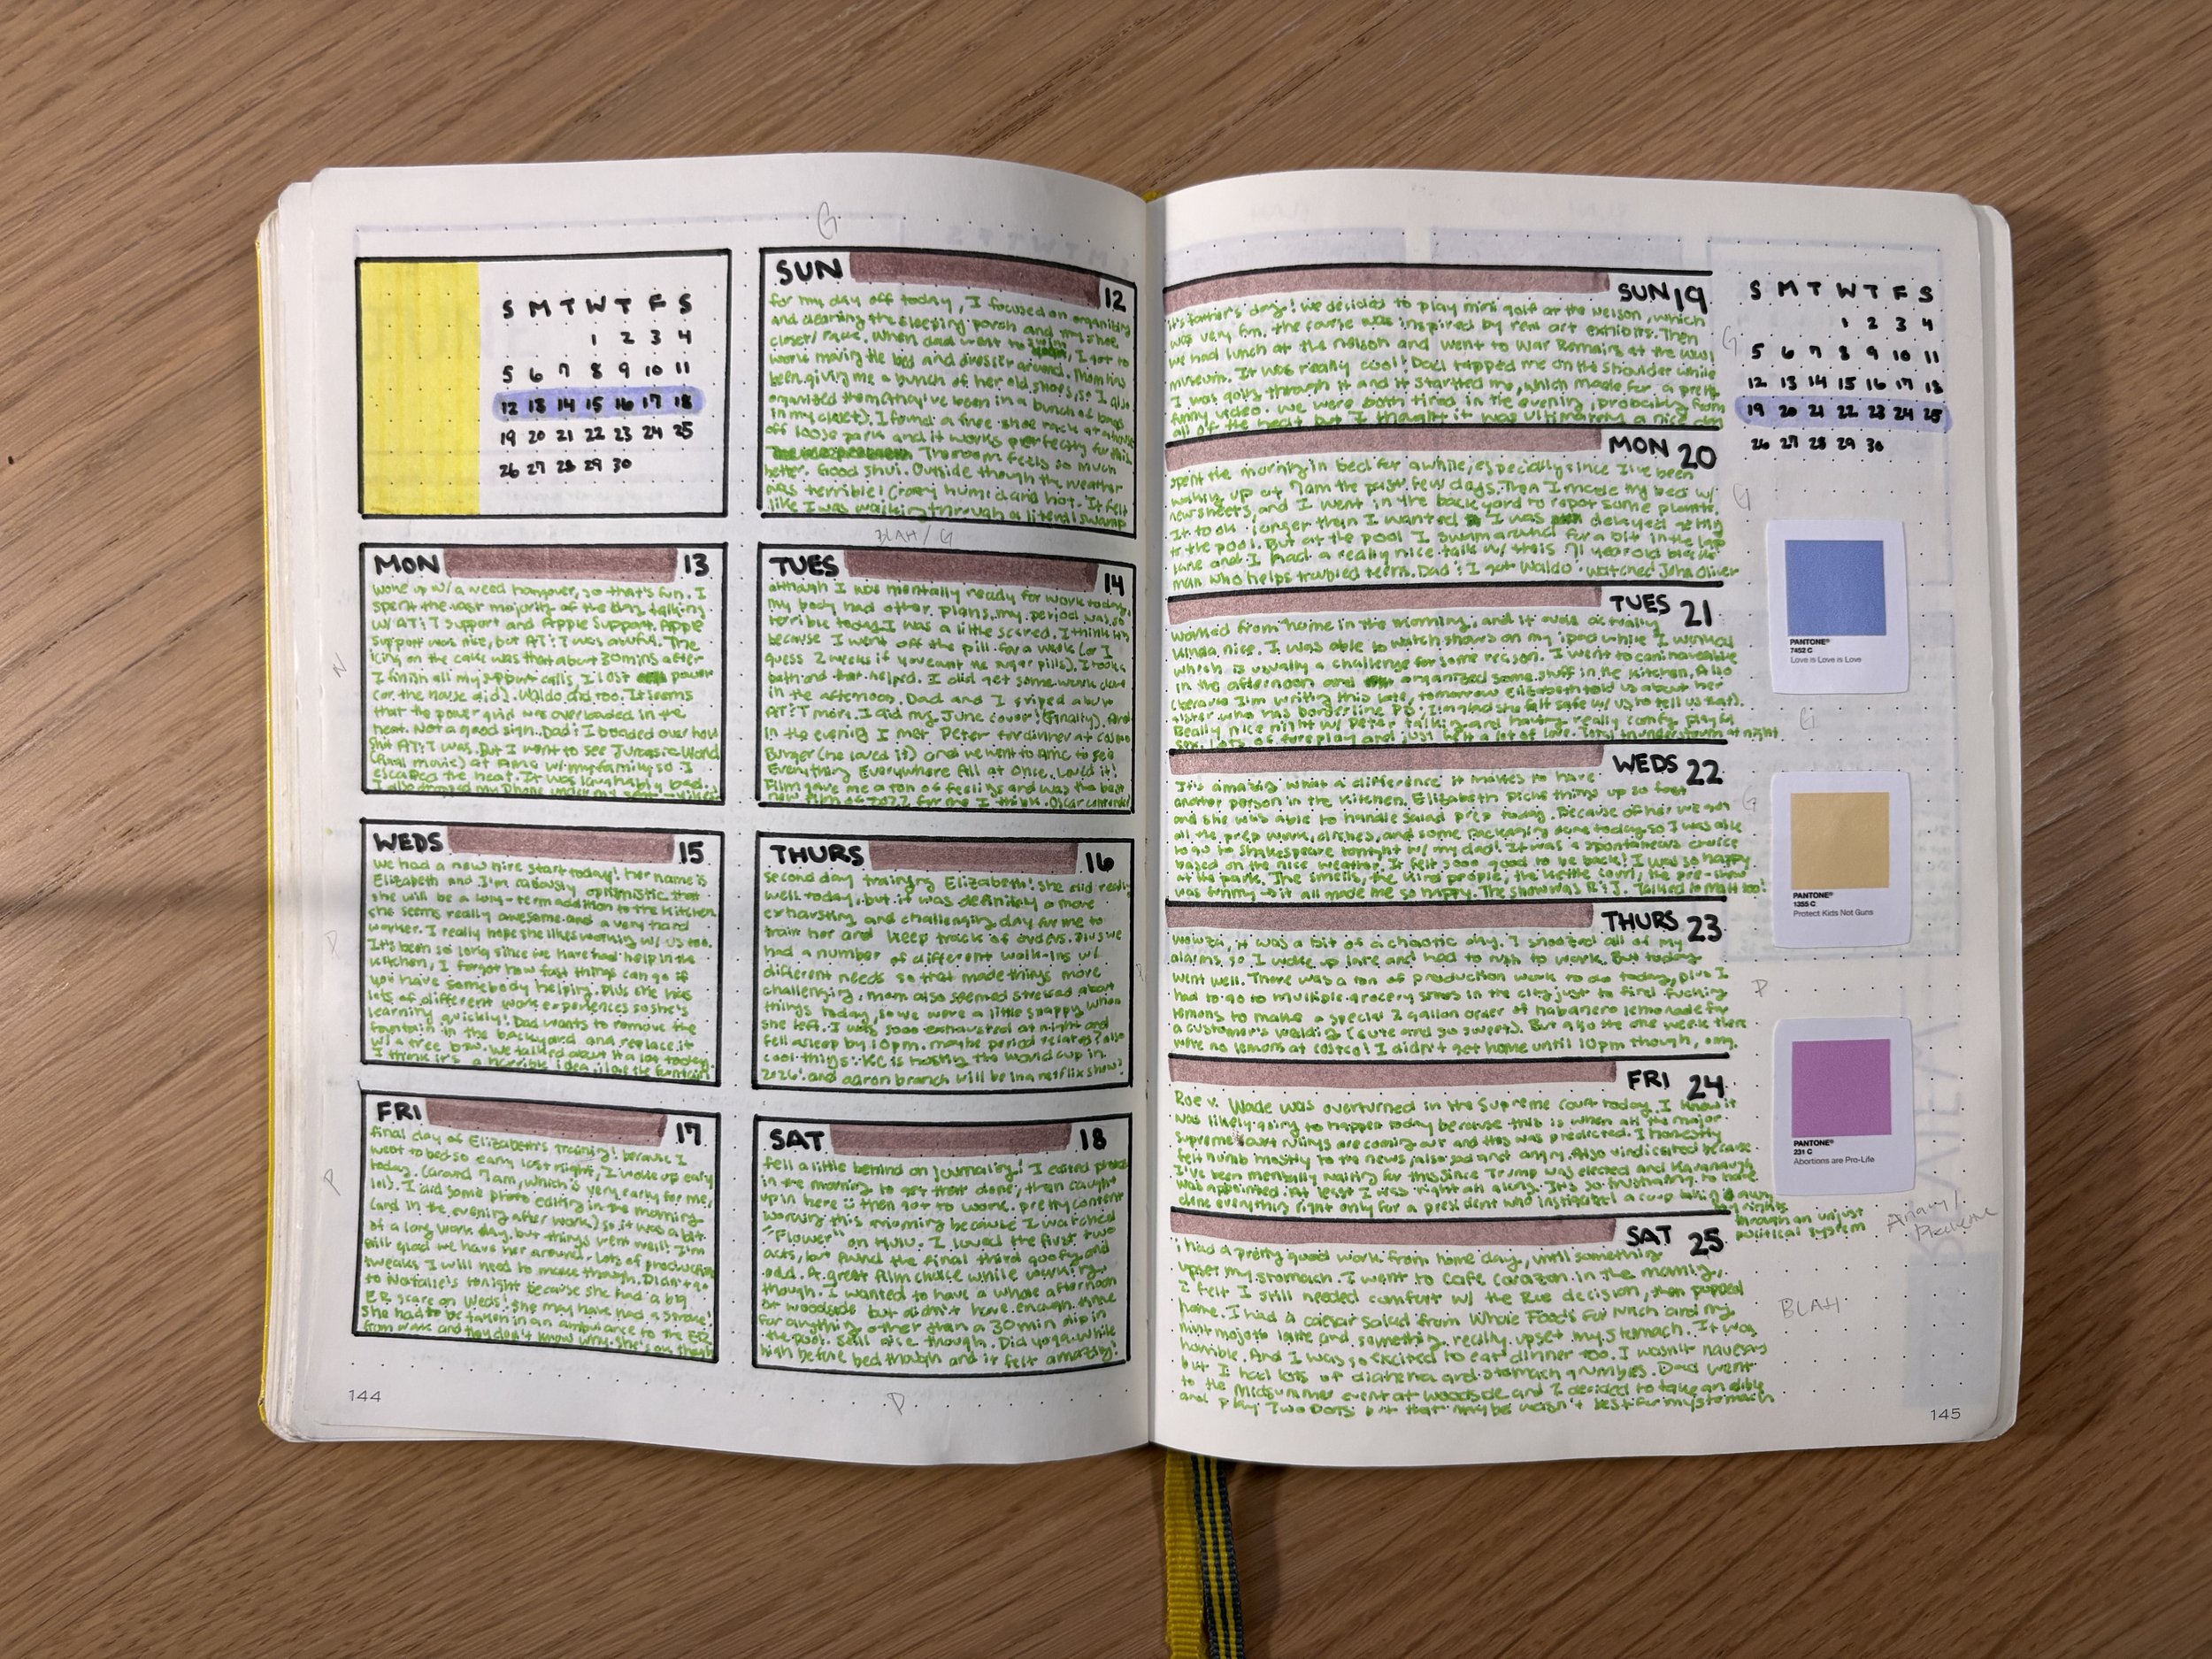 G
S M T W T F S
1 2 3 4
5 6 7 8 9 10 11
12 13 14 15 16 17 18
19 20 21 22 23 24 25
26 27 28 29 30
SUN 12
for my day off today, I focused on organizing
and cleaning the sleeping porch and my shoe
closet/rack. When dad went to I got to
work moving the bed and dresser around. Mom has
been giving me a bunch of her old shoes, so I also
organized them (they've been in a bunch of bags
in my closet). I found a free shoe rack at a house
off loose park and it works perfectly for this.
The room feels so much
better. Good shui. Outside though the weather
was terrible! Crazy humid and hot. It felt
like I was walking through a literal swamp
BLAH / G
MON 13
woke up w/ a weed hangover, so that's fun. I
spent the vast majority of the day talking
w/ AT&T support and Apple Support. Apple
support was nice, but AT&T was awful. The
icing on the cake was that about 30 mins after
I finish all my support calls, I lost power
(or the house did). Waldo did too. It seems
that the power grid was overloaded in the
heat. Not a good sign. Dad & I bonded over how
shit AT&T was. But I went to see Jurassic World
(final movie) at AMC w/ my family so I
escaped the heat. It was laughably bad.
I also dropped my phone under my seat
N
TUES 14
although I was mentally ready for work today,
my body had other plans. my period was so
terrible today I was a little scared. I think it's
because I went off the pill for a week (or I
guess 2 weeks if you count the sugar pills). I took a
bath and that helped. I did get some work done
in the afternoon. Dad and I griped about
AT&T more. I did my June cover (finally). And
in the evening I met Peter for dinner at Cosmo
Burger (he loved it) and we went to AMC to see
Everything Everywhere All at Once. Loved it!
Film gave me a ton of feelings and was the best
new film of 2022 for me I think. Oscar contender!
WEDS 15
we had a new hire start today! her name is
Elizabeth and I'm cautiously optimistic that
she will be a long-term addition to the kitchen.
she seems really awesome and a very hard
worker. I really hope she likes working w/ us too.
It's been so long since we have had help in the
kitchen, I forgot how fast things can go if
you have somebody helping. plus she has
lots of different work experiences so she's
learning quickly! Dad wants to remove the
fountain in the backyard and replace it
w/ a tree btw. We talked about it a lot today.
I think it's a horrible idea, I love the fountain!
P
THURS 16
second day training Elizabeth! she did really
well today, but it was definitely a more
exhausting and challenging day for me to
train her and keep track of orders. Plus we
had a number of different walk-ins w/
different needs so that made things more
challenging. Mom also seemed stressed about
things today, so we were a little snappy when
she left. I was sooo exhausted at night and
fell asleep by 10pm. maybe period related? also
cool things: KC is hosting the world cup in
2026! and aaron branch will be in a netflix show!
FRI 17
final day of Elizabeth's training! because I
went to bed so early last night, I woke up early
today. (around 7am, which is very early for me,
lol). I did some photo editing in the morning
(and in the evening after work) so it was a bit
of a long work day, but things went well! I'm
still glad we have her around. Lots of production
tweaks I will need to make though. Didn't go
to Natalie's tonight because she had a big
ER scare on Weds! She may have had a stroke!
She had to be taken in an ambulance to the ER
from work and they don't know why. She's ok though
P
SAT 18
fell a little behind on journaling! I edited photos
in the morning to get that done, then caught
up in here :) then got to work. pretty content
working this morning because I watched
"Flower" on Hulu. I loved the first two
acts, but found the final third goofy and
odd. A great film choice while working,
though. I wanted to have a whole afternoon
at woodside but didn't have enough time
for anything other than a 30 min dip in
the pool. Still nice though. Did yoga while
high before bed though and it felt amazing!
P
144
SUN 19
it's father's day! we decided to play mini golf at the Nelson, which
was very fun. the course was inspired by real art exhibits. Then
we had lunch at the nelson and went to War Remains at the WWI
museum. It was really cool! Dad tapped me on the shoulder while
I was going through it and it startled me, which made for a pretty
funny video. we were both tired in the evening, probably from
all of the heat but I thought it was ultimately a nice day
G
S M T W T F S
1 2 3 4
5 6 7 8 9 10 11
12 13 14 15 16 17 18
19 20 21 22 23 24 25
26 27 28 29 30
MON 20
spent the morning in bed for awhile, especially since I've been
waking up at 7am the past few days. Then I made my bed w/
new sheets, and I went in the backyard to repot some plants.
It took longer than I wanted I was delayed getting
to the pool. But at the pool I swam around for a bit in the lap
lane and I had a really nice talk w/ this 71 year old black
man who helps troubled teens. Dad & I got Waldo & watched John Oliver
G
TUES 21
worked from home in the morning, and it was actually
kinda nice. I was able to watch shows on my ipad while I worked
which is usually a challenge for some reason. I went to
in the afternoon and organized some stuff in the kitchen. Also
(because I'm writing this late, tomorrow Elizabeth told us about her
sister who has borderline PD. I'm glad she felt safe w/ us to tell us that).
Really nice night w/ Peter talking and having really comfy, playful
sex. Lots of foreplay and just felt a lot of love. Total thunderstorm at night
PANTONE®
7452 C
Love is Love is Love
G
WEDS 22
It's amazing what a difference it makes to have
another person in the kitchen. Elizabeth picks things up so fast
and she was able to handle salad prep today. Because of her we got
all the prep work, dishes, and some packaging done today so I was able
to go to Shakespeare tonight w/ my dad! It was a spontaneous choice
based on the nice weather. It felt sooo good to be back! I was so happy
at the park. The smells, the kind people, the kettle corn, the pre-show
was funny - it all made me so happy. The show was R&J. Talked to Matt too!
G
PANTONE®
1355 C
Protect Kids Not Guns
THURS 23
wowza, it was a bit of a chaotic day. I snoozed all of my
alarms, so I woke up late and had to rush to work. But today
went well. There was a ton of production work to do today, plus I
had to go to multiple grocery stores in the city just to find fucking
lemons to make a special 2 gallon order of habanero lemonade for
a customer's wedding (cute and so sweet). But also the one week there
were no lemons at costco! I didn't get home until 10pm though, omg.
P
PANTONE®
231 C
Abortions are Pro-Life
FRI 24
Roe v. Wade was overturned in the Supreme Court today. I knew it
was likely going to happen today because this is when all the major
Supreme Court rulings are coming out and this was predicted. I honestly
felt numb mostly to the news, also sad and angry. Also vindicated because
I've been mentally waiting for this since Trump was elected and Kavanaugh
was appointed. At least I was right all along. It's so frustrating to have
done everything right only for a president who instigated a coup taking away
my rights
through an unjust
political system
Angry /
SAT 25
I had a pretty good work from home day, until something
upset my stomach. I went to Cafe Corazon in the morning,
I felt I still needed comfort w/ the Roe decision, then popped
home. I had a caesar salad from Whole Foods for lunch and my
mint mojoto latte and something really upset my stomach. It was
horrible. And I was so excited to eat dinner too. I wasn't nauseas
but I had lots of diahrrea and stomach grumbles. Dad went
to the midsummer event at woodside and I decided to take an edible
and play Two Dots but that maybe wasn't best for my stomach
BLAH
145